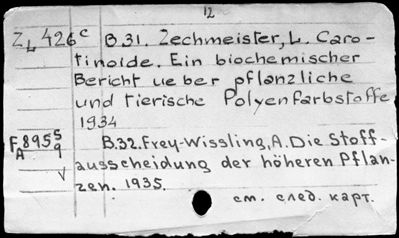 12
Z L 426 c B.31. Zechmeister, L. Caro-
tinoide. Ein biochemischer
Bericht ueber pflanzliche
und tierische Polyenfarbstoffe
1934
F 895 5 B.32. Frey-Wissling, A. Die Stoff-
A 9 ausscheidung der höheren Pflan-
v zen. 1935.
см. след. карт.